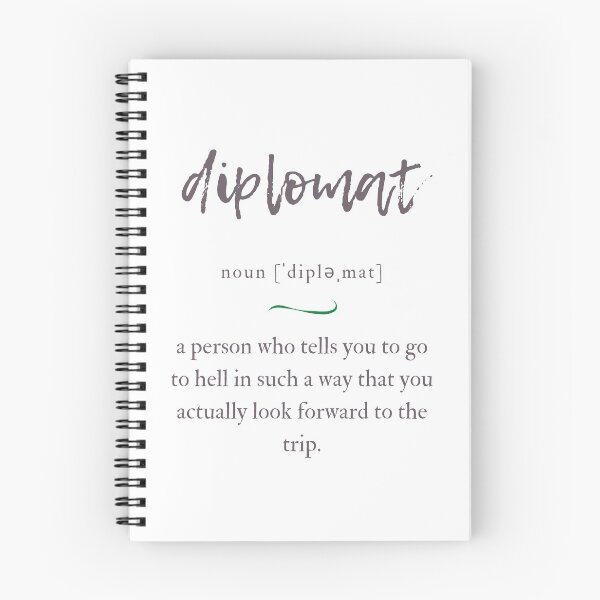 diplomat
noun [ˈdipləˌmat]
a person who tells you to go
to hell in such a way that you
actually look forward to the
trip.